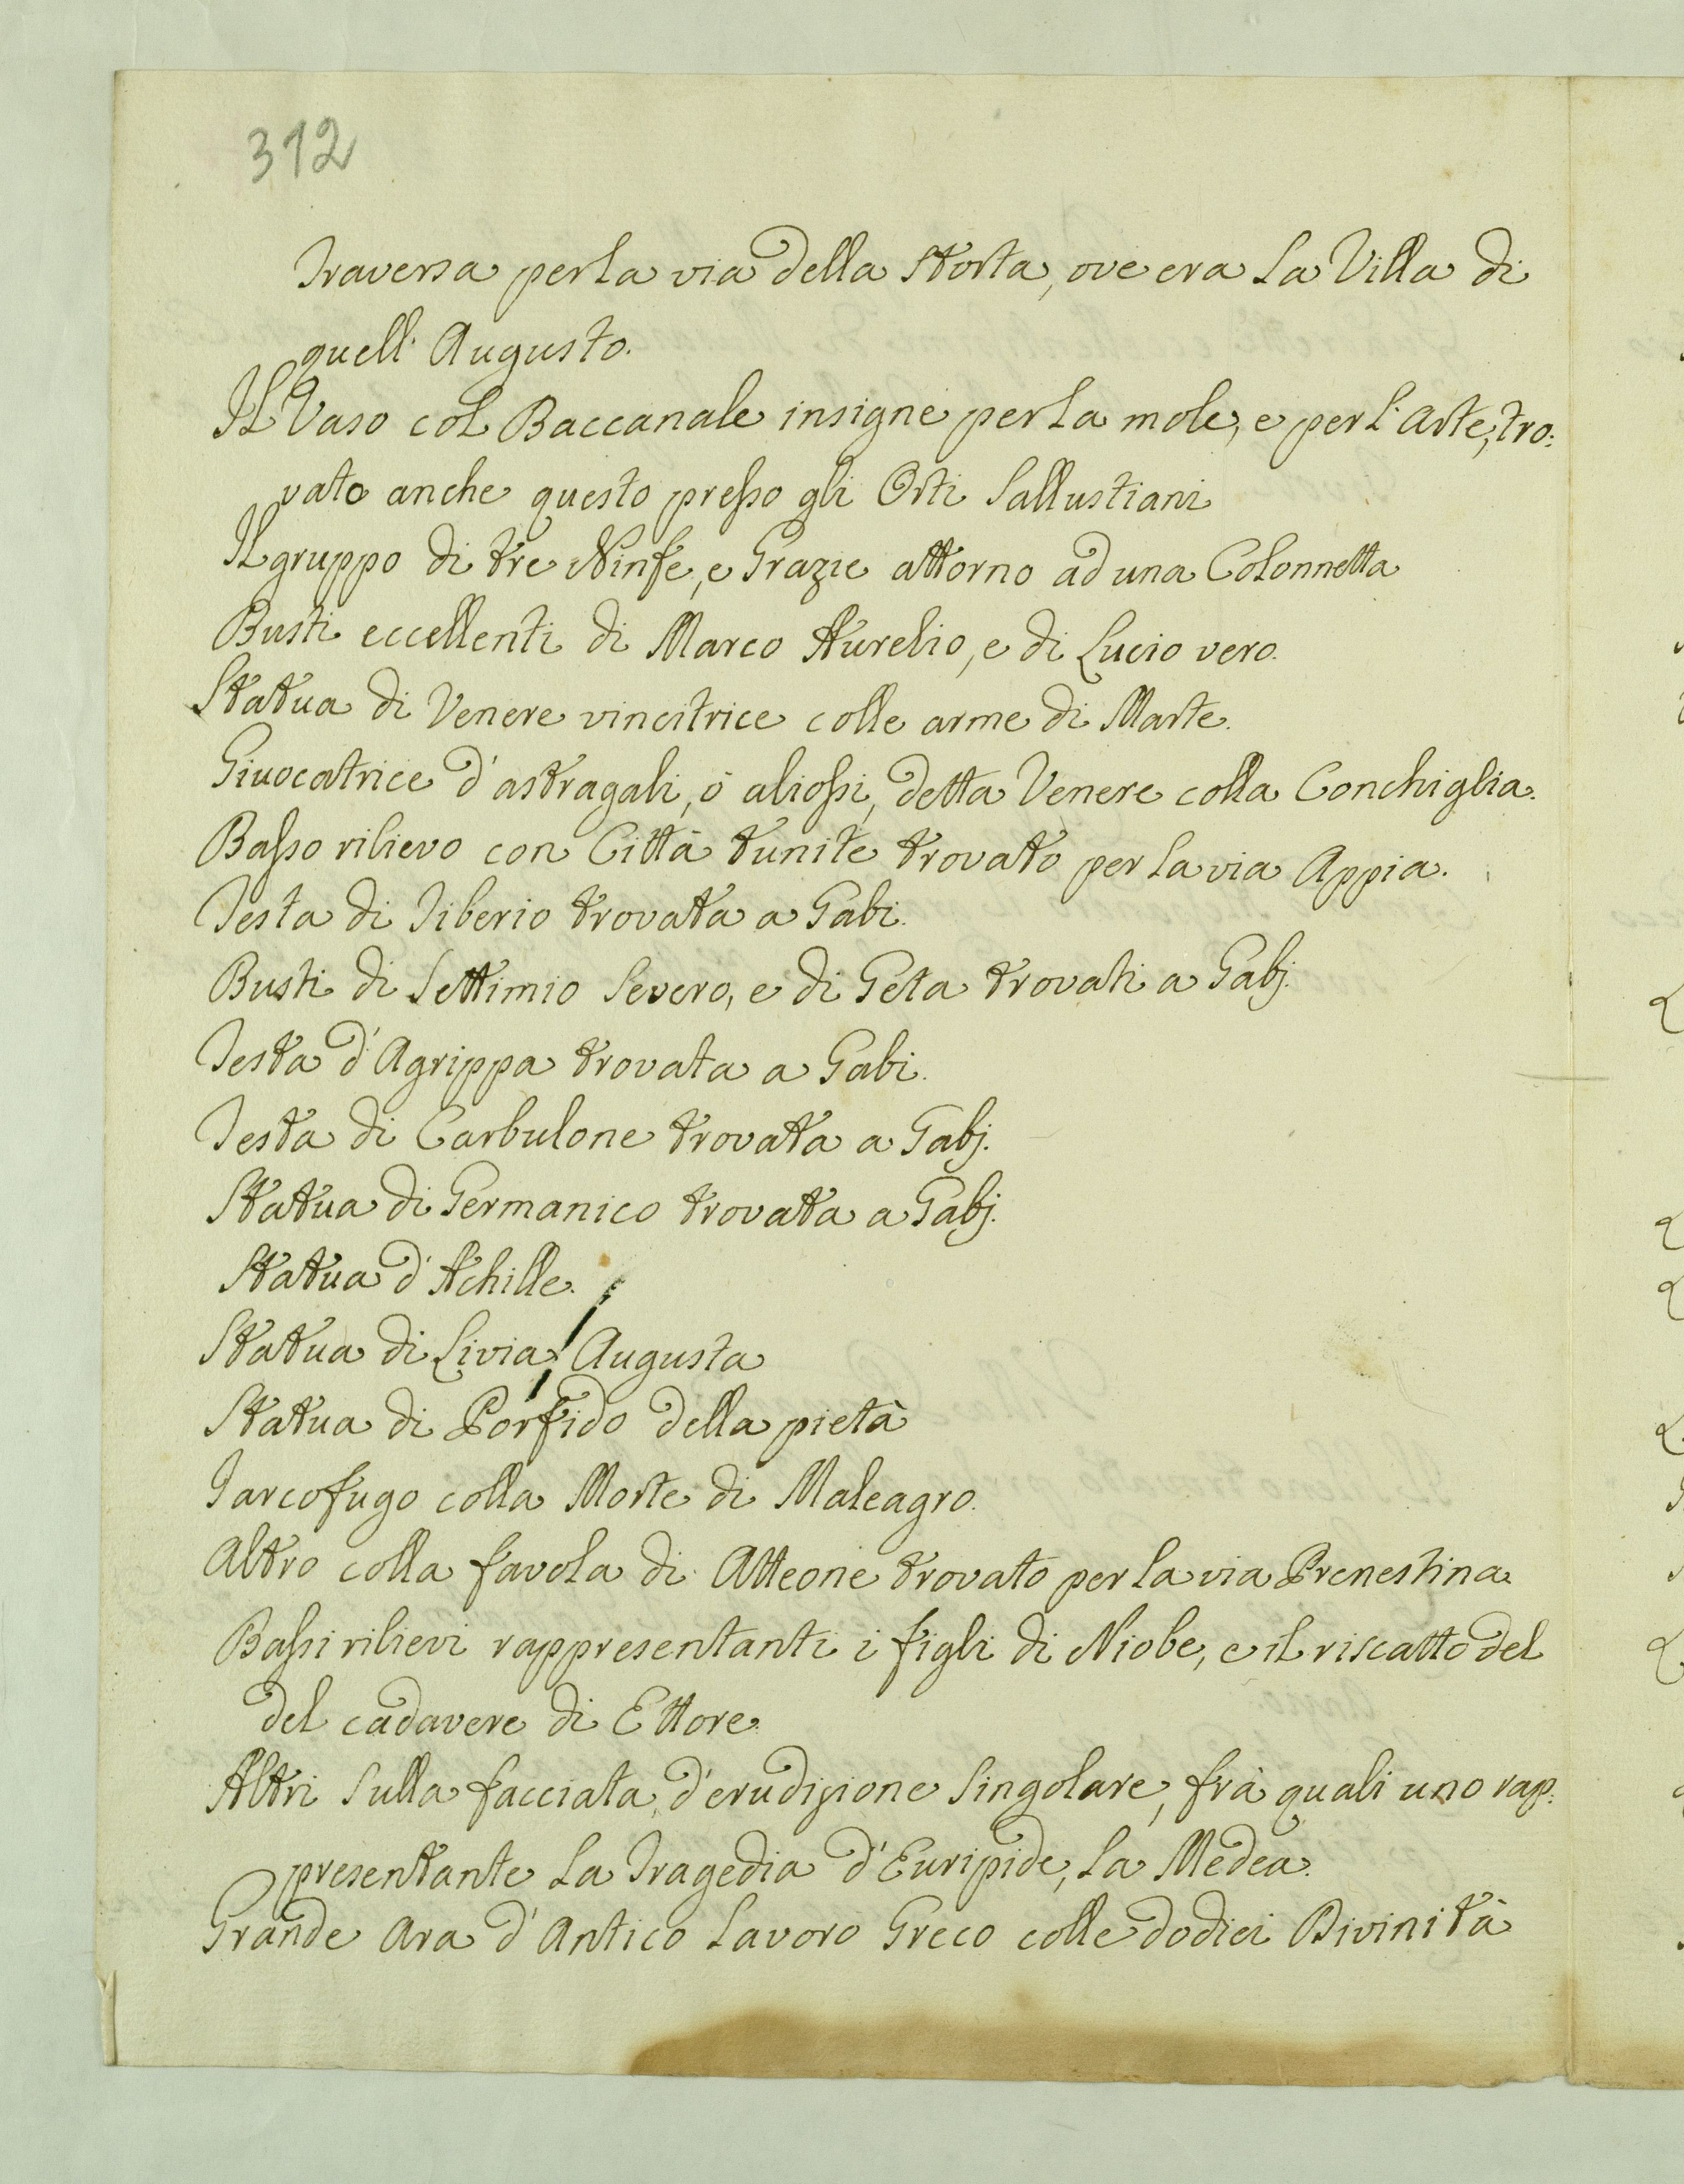 312
Traversa per la via della Storta, ove era la Villa di
quell' Augusto.
Il Vaso col Baccanale insigne per la mole, e per l'Arte, tro:
vato anche questo presso gli Orti Sallustiani
Il gruppo di tre Ninfe, e Grazie attorno ad una Colonnetta
Busti eccellenti di Marco Aurelio, e di Lucio vero.
Statua di Venere vincitrice colle arme di Marte.
Giuocatrice d'astragali, ò aliossi, detta Venere colla Conchiglia.
Basso rilievo con Città tunite trovato per la via Appia.
Testa di Tiberio trovata a Gabi.
Busti di Settimio Severo, e di Geta trovati a Gabj.
Testa d'Agrippa trovata a Gabi.
Testa di Carbulone trovata a Gabj.
Statua di Germanico trovata a Gabj.
Statua d'Achille.
Statua di Livia Augusta
Statua di Porfido della pietà
Sarcofugo colla Morte di Maleagro.
Altro colla favola di Atteone trovato per la via Prenestina.
Bassi rilievi rappresentanti i figli di Niobe, e il riscatto del
del cadavere di Ettore.
Altri sulla facciata, d'erudizione singolare, frà quali uno rap:
presentante la Tragedia d'Euripide, la Medea.
Grande Ara d'Antico lavoro Greco colle dodici Divinità